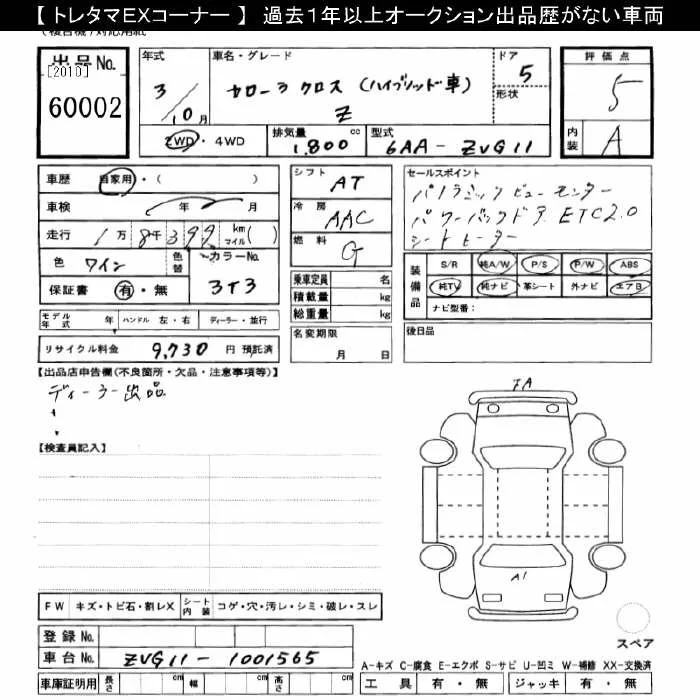 【 トレタマＥＸコーナー 】 過去１年以上オークション出品歴がない車両
出品No.
[2010]
60002
年式
3／10月
車名・グレード
カローラ クロス (ハイブリッド車)
Z
ドア
5
形状
評価点
5
内装
A
2WD・4WD
排気量
1,800 cc
型式
6AA－ZVG11
車歴 自家用・( )
車検 年 月
走行 1万8千399 km マイル( )
色 ワイン 色替 カラーNo. 3T3
保証書 有・無
シフト AT
冷房 AAC
燃料 G
乗車定員 名
積載量 kg
総重量 kg
名変期限
月 日
セールスポイント
パノラミックビューモニター
パワーバックドア ETC2.0
シートヒーター
装備品
S/R 純A/W P/S P/W ABS
純TV 純ナビ 革シート 外ナビ エアB
ナビ型番：
後日品
モデル年式 年 ハンドル 左・右 ディーラー・並行
リサイクル料金 9,730 円 預託済
【出品店申告欄(不良箇所・欠品・注意事項等)】
ディーラー出品
【検査員記入】
FA
A1
スペア
FW キズ・トビ石・割レX シート内装 コゲ・穴・汚レ・シミ・破レ・スレ
登録No.
車台No. ZVG11－1001565
車庫証明用 長さ cm 幅 cm 高さ cm
A-キズ C-腐食 E-エクボ S-サビ U-凹ミ W-補修 XX-交換済
工具 有・無 ジャッキ 有・無